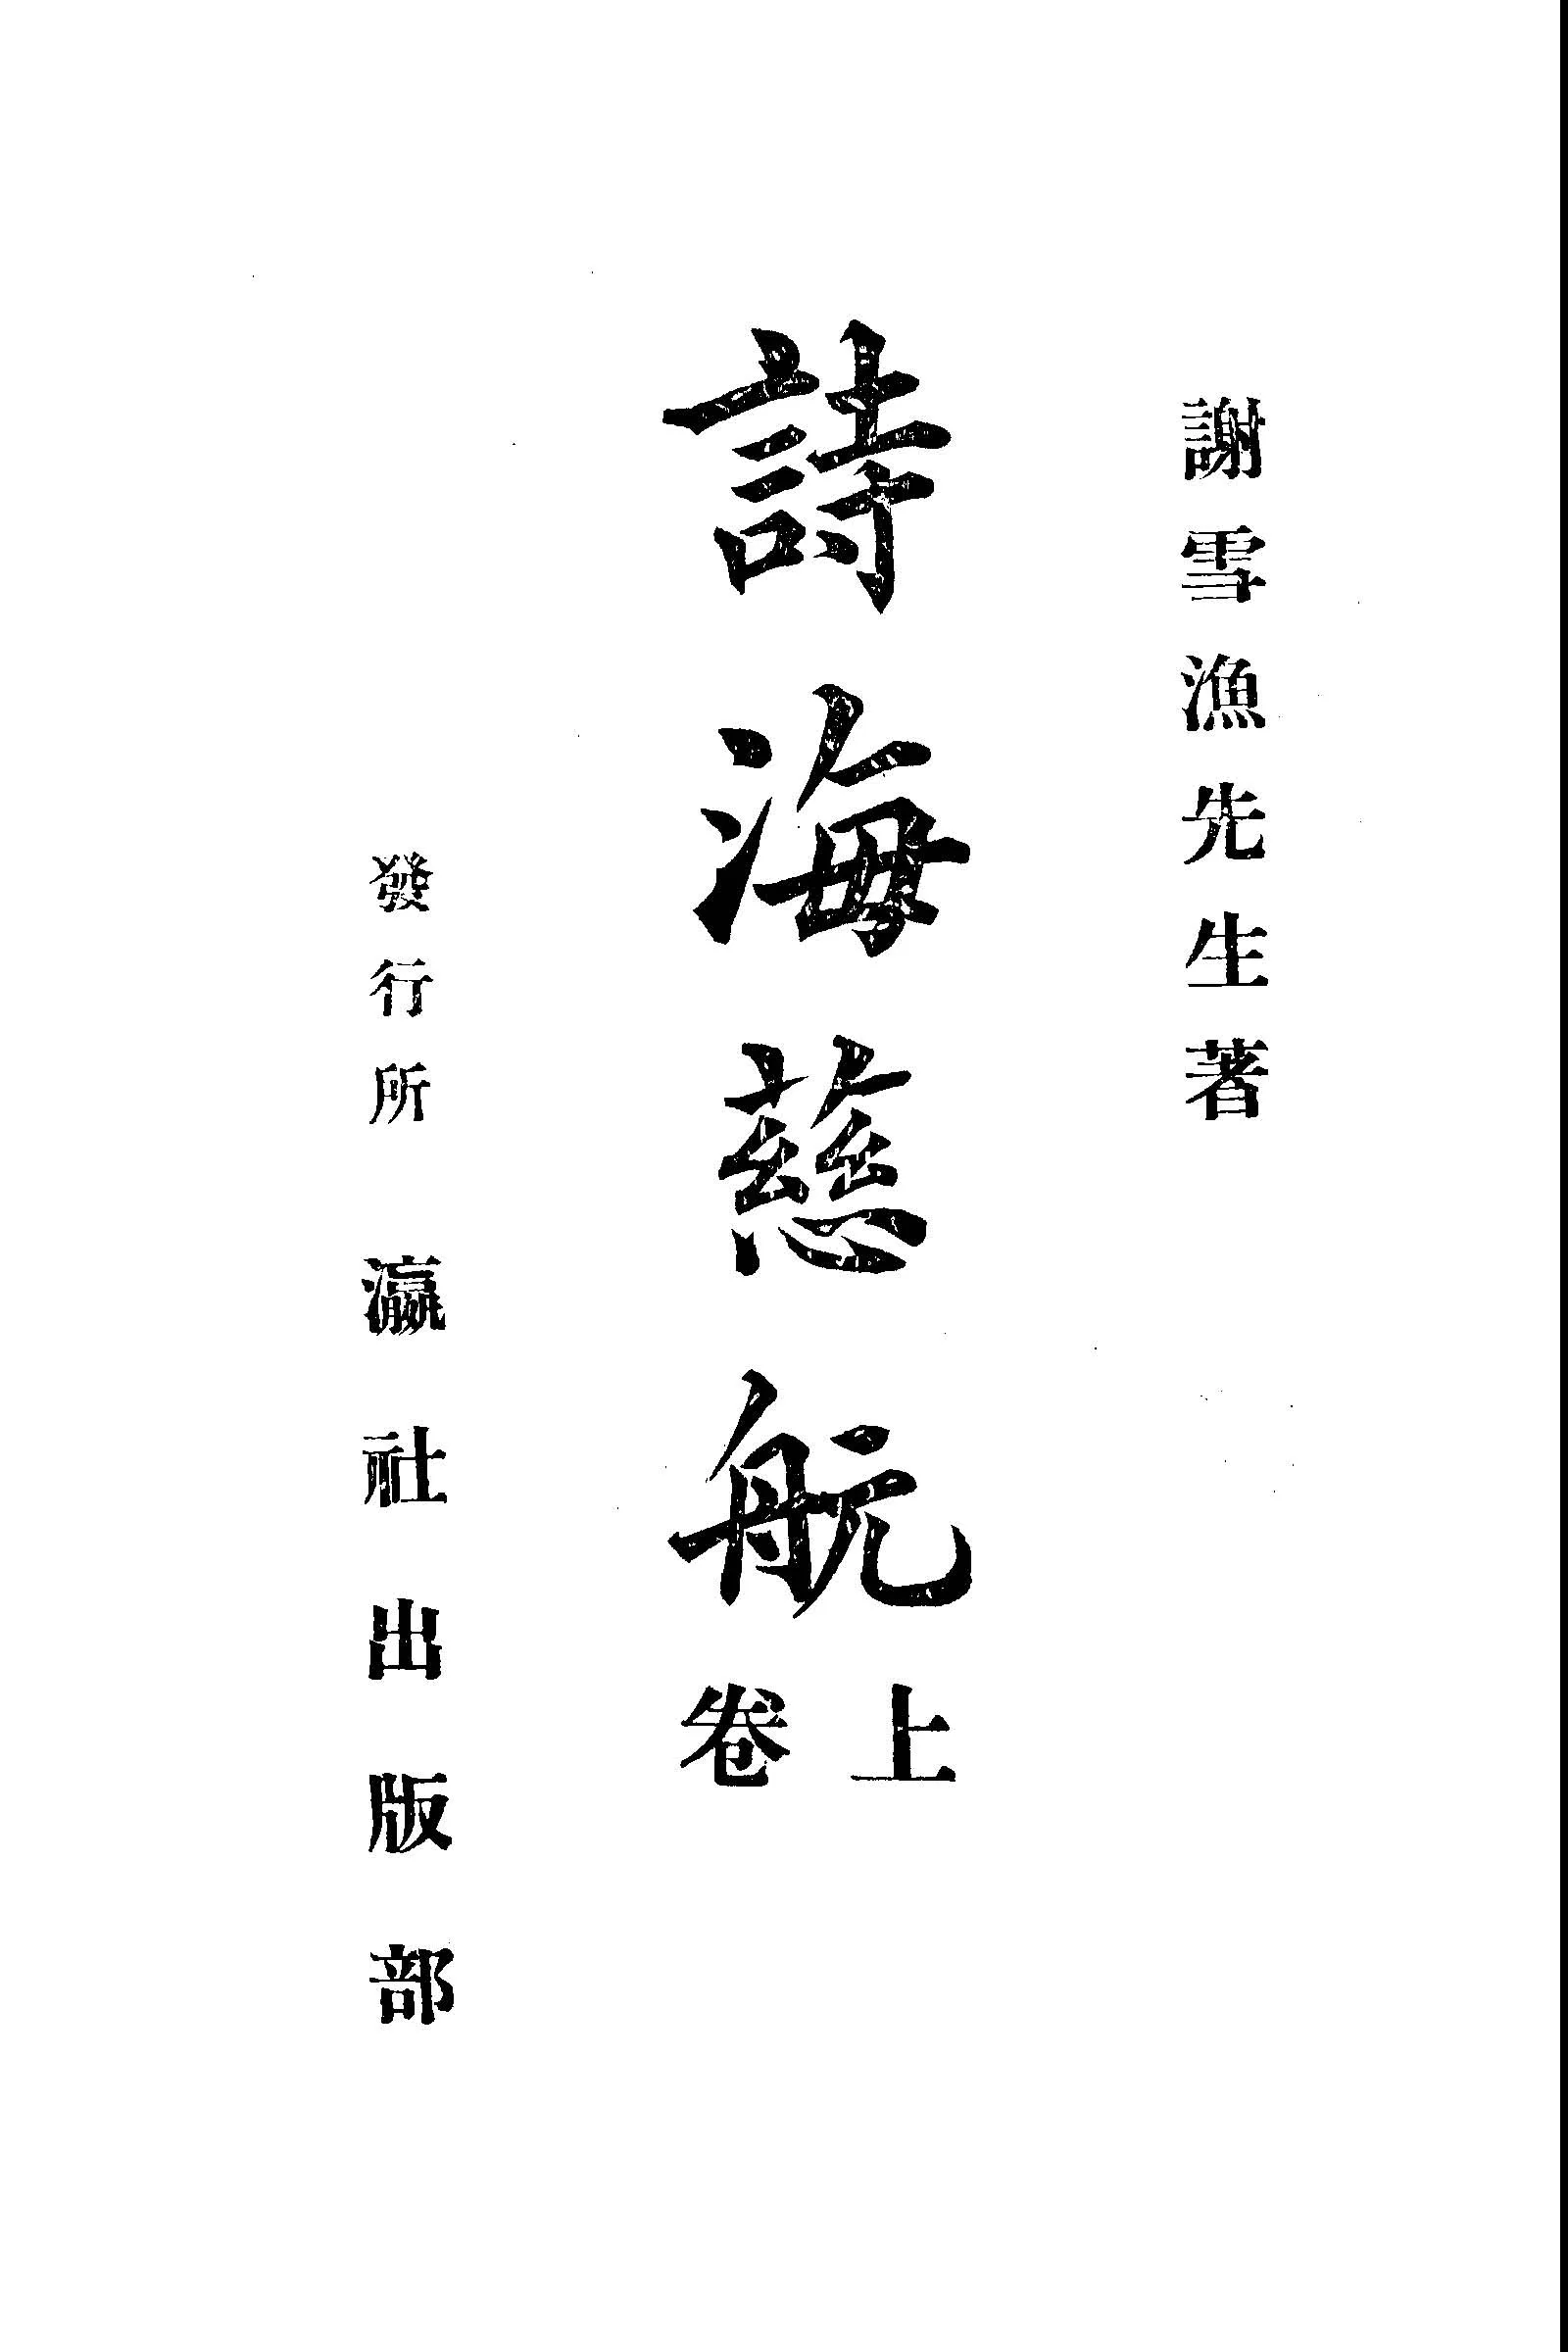 謝雪漁先生著
詩海慈航 上卷
發行所 瀛社出版部